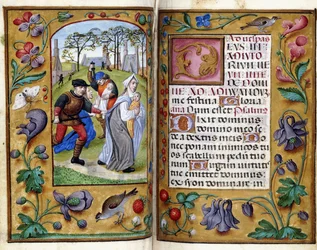 Ad vesperas
EVS IN
ADIVTO
RIVM ME
VM INTE
DE DOMI
NE AD ADIVVANDVM
me festina Gloria
Ana Dum esset Psalmus
Dixit dominus
domino meo se
de a dextris meis Do
nec ponam inimicos tu
os scabellum pedum tuo
rum Virgam virtutis
tue emittet dominus
ex syon dominare in